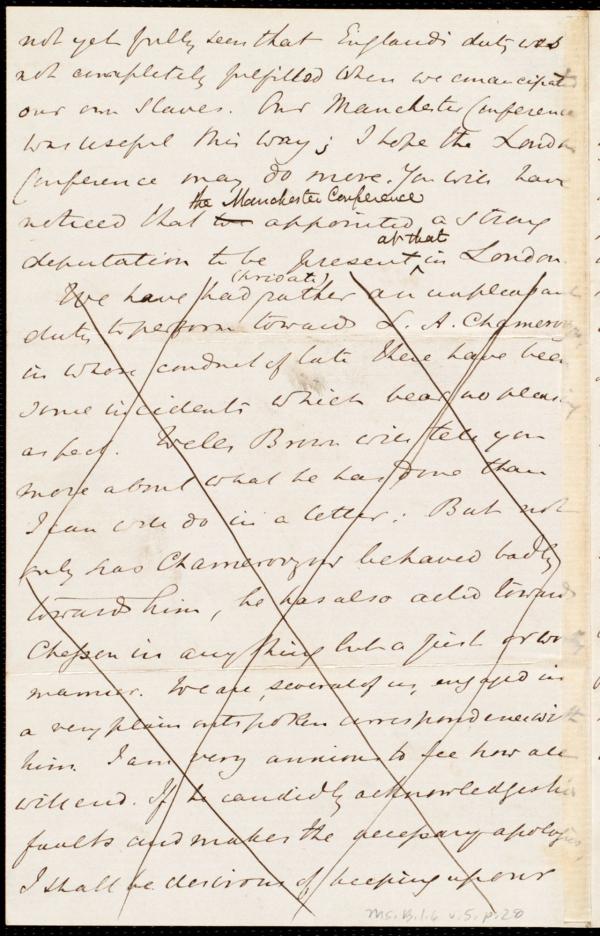 not yet fully seen that England's duty was
not completely fulfilled when we emancipated
our own slaves. Our Manchester Conference
was useful this way; I hope the London
Conference may do more. You will have
the Manchester Conference
noticed that we appointed a strong
at that
deputation to be present in London.
(privately)
We have had rather an unpleasant
duty to perform towards L. A. Chamerovzow
in whose conduct of late there have been
some incidents which bear no pleasing
aspect. Wells Brown will tell you
more about what he has done than
I can well do in a letter: But not
only has Chamerovzow behaved badly
towards him, he has also acted towards
Chesson in anything but a just or worthy
manner. We are, several of us, engaged in
a very plain outspoken correspondence with
him. I am very anxious to see how all
will end. If he candidly acknowledges his
faults and makes the necessary apologies,
I shall be desirous of keeping up our
Ms.B.1.6 v.5. p.20